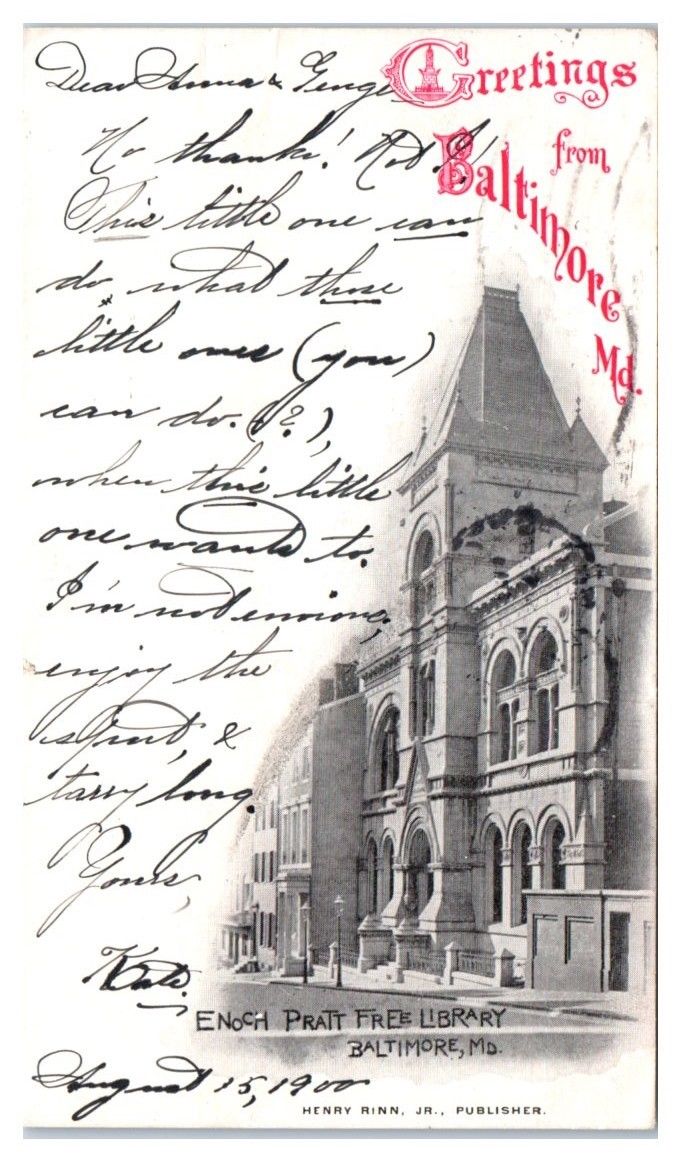 Greetings
from
Baltimore
Md.
Dear Anna & George
No thanks! Not I!
This little one can
do what those
little ones (you)
can do. (?),
when this little
one wants to.
I'm not envious,
enjoy the
spirit, &
tarry long.
Yours,
Kate.
August 15, 1900
ENOCH PRATT FREE LIBRARY
BALTIMORE, MD.
HENRY RINN, JR., PUBLISHER.